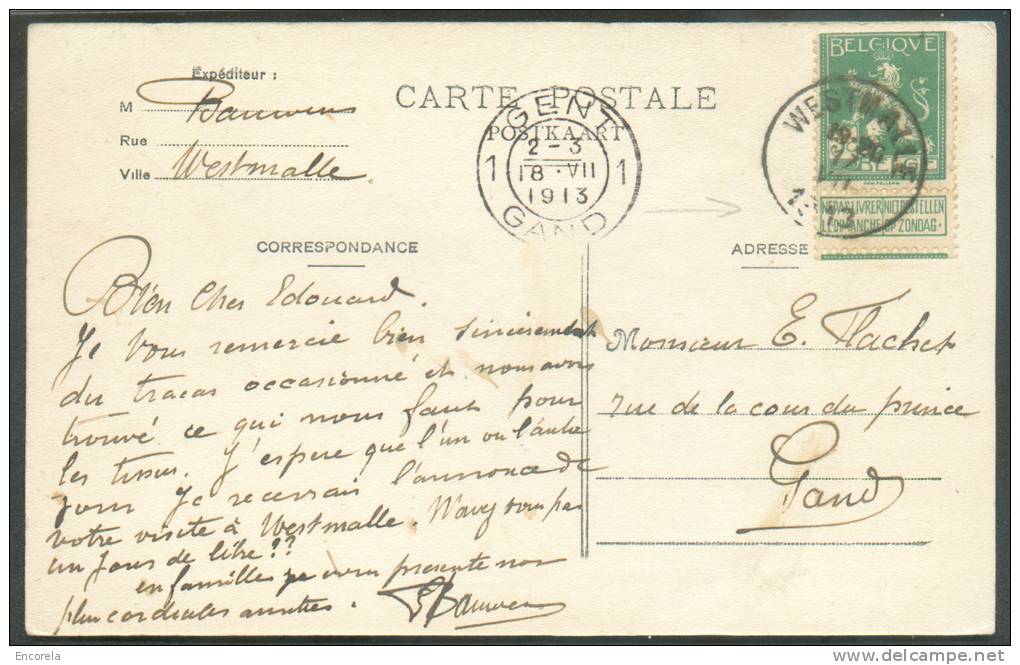 Expéditeur :
M Bauwens
Rue
Ville Westmalle
CARTE POSTALE
POSTKAART
GENT
2-3
1 18 VII 1
1913
GAND
BELGIQUE
WESTMALLE
BELGIË
NE PAS LIVRER NIET BESTELLEN
LE DIMANCHE OP ZONDAG.
CORRESPONDANCE
ADRESSE
Bien Cher Edouard.
Je vous remercie bien sincèrement
du tracas occasionné et nous avons
trouvé ce qui nous faut pour
les tissus. J'espère que l'un ou l'autre
jour je recevrais l'annonce de
votre visite à Westmalle. N'avez vous pas
un jour de libre??
en familles je vous présente nos
plus cordiales amitiés. Bauwens
Monsieur E. Flachet
rue de la cour du prince
Gand
Encorela
delcampe.net